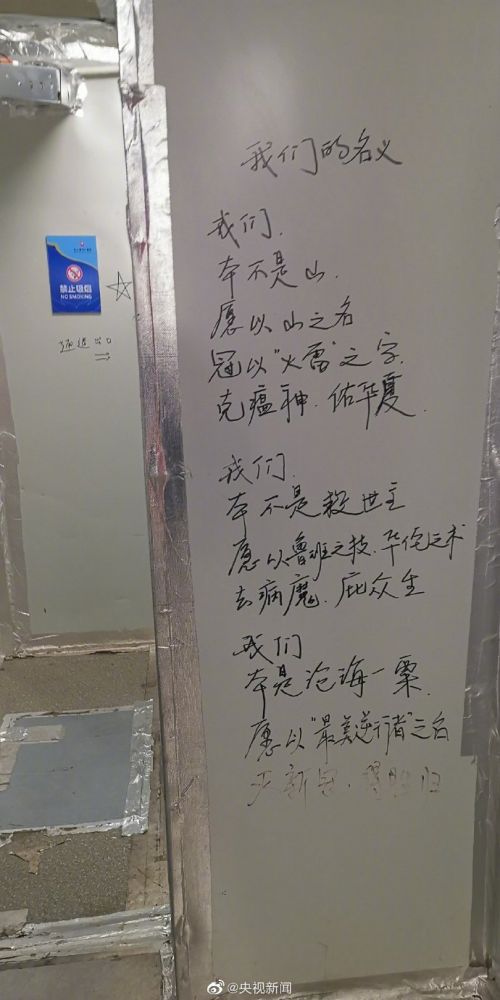 我们的名义
我们.
本不是山.
愿以山之名
冠以"火雷"之字.
克瘟神.佑华夏.
我们.
本不是救世主
愿以鲁班之技.华佗之术
去病魔.庇众生
我们
本是沧海一粟.
愿以"最美逆行者"之名
禁止吸烟
NO SMOKING
出口
@央视新闻